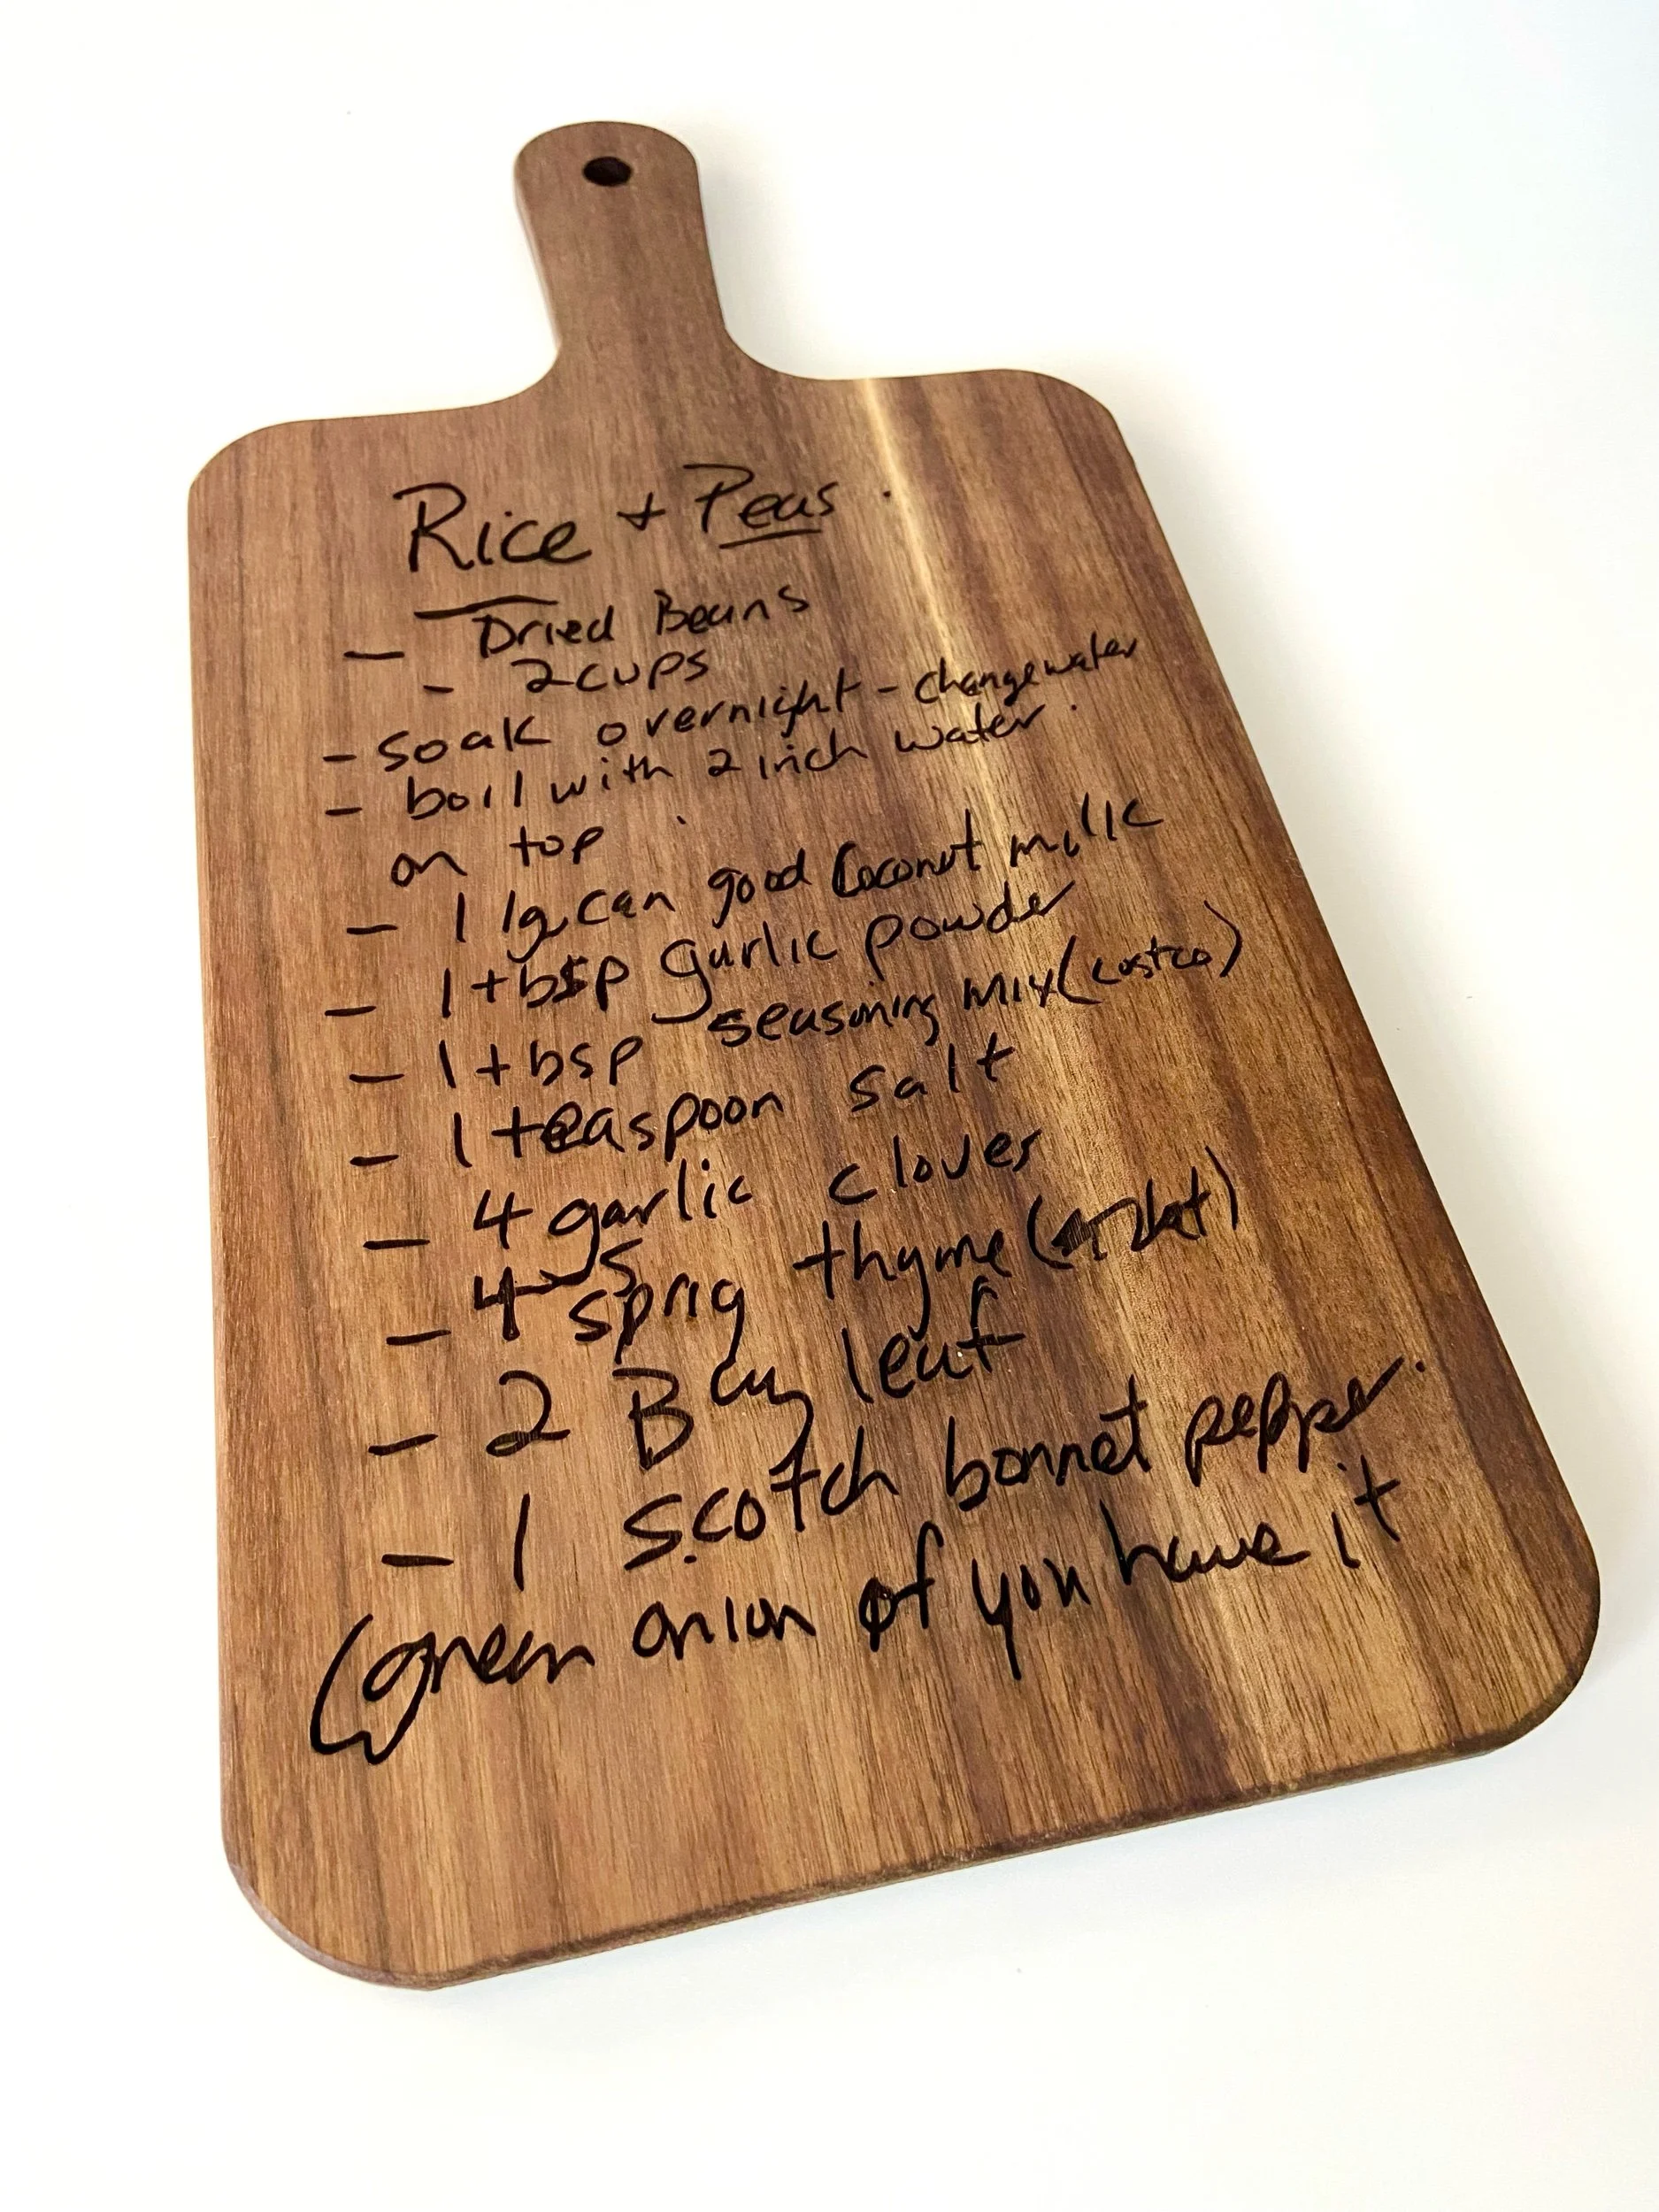 Rice + Peas.
- Dried Beans
- 2 cups
- soak overnight - change water
- boil with 2 inch water.
on top.
- 1 lg can good Coconut milk
- 1 tbsp garlic powder
- 1 tbsp seasoning mix (costco)
- 1 teaspoon salt
- 4 garlic cloves
- 4-5 sprig thyme
- 2 Bay leaf
- 1 scotch bonnet pepper.
(green onion if you have it